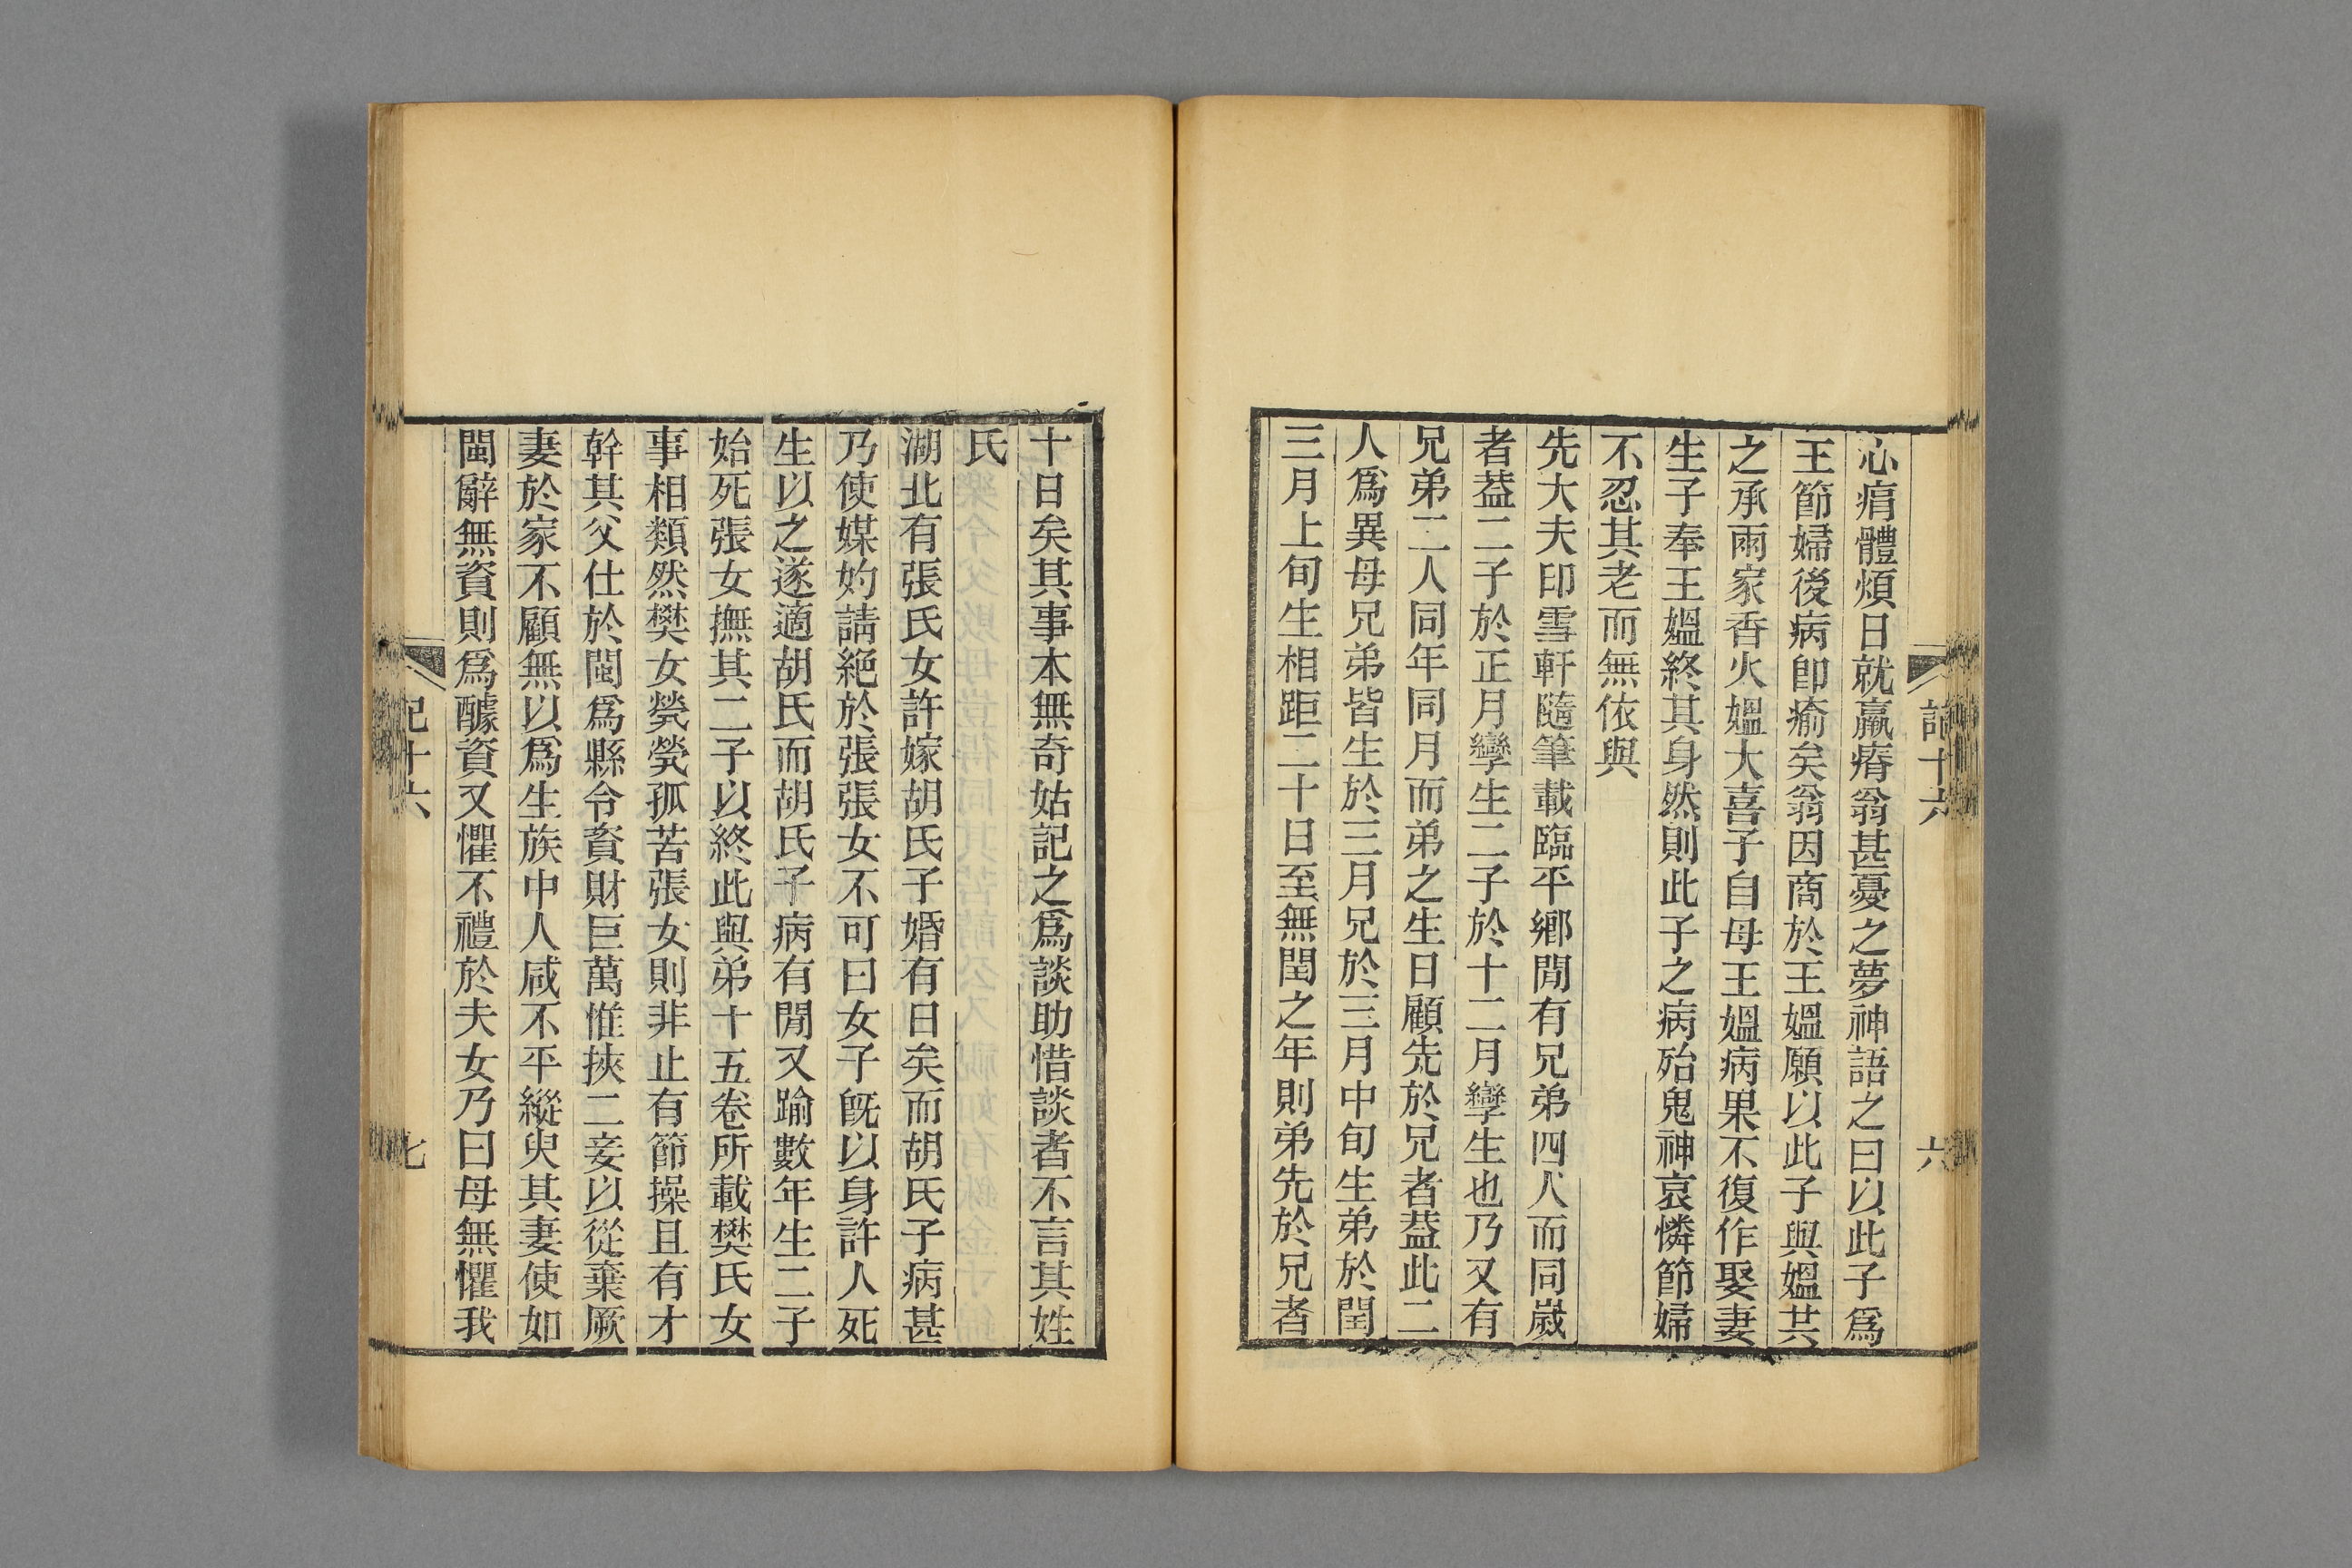 記十六
六
心痟體煩日就羸瘠翁甚憂之夢神語之曰以此子爲
王節婦後病卽瘉矣翁因商於王媼願以此子與媼共
之承兩家香火媼大喜子自母王媼病果不復作娶妻
生子奉王媼終其身然則此子之病殆鬼神哀憐節婦
不忍其老而無依與
先大夫印雪軒隨筆載臨平鄉閒有兄弟四人而同歲
者葢二子於正月孿生二子於十二月孿生也乃又有
兄弟二人同年同月而弟之生日顧先於兄者葢此二
人爲異母兄弟皆生於三月兄於三月中旬生弟於閏
三月上旬生相距二十日至無閏之年則弟先於兄者
十日矣其事本無奇姑記之爲談助惜談者不言其姓
氏
湖北有張氏女許嫁胡氏子婚有日矣而胡氏子病甚
乃使媒妁請絕於張張女不可曰女子旣以身許人死
生以之遂適胡氏而胡氏子病有閒又踰數年生二子
始死張女撫其二子以終此與弟十五卷所載樊氏女
事相類然樊女煢煢孤苦張女則非止有節操且有才
幹其父仕於閩爲縣令資財巨萬惟挾二妾以從棄厥
妻於家不顧無以爲生族中人咸不平縱臾其妻使如
閩辭無資則爲醵資又懼不禮於夫女乃曰母無懼我
記十六
七